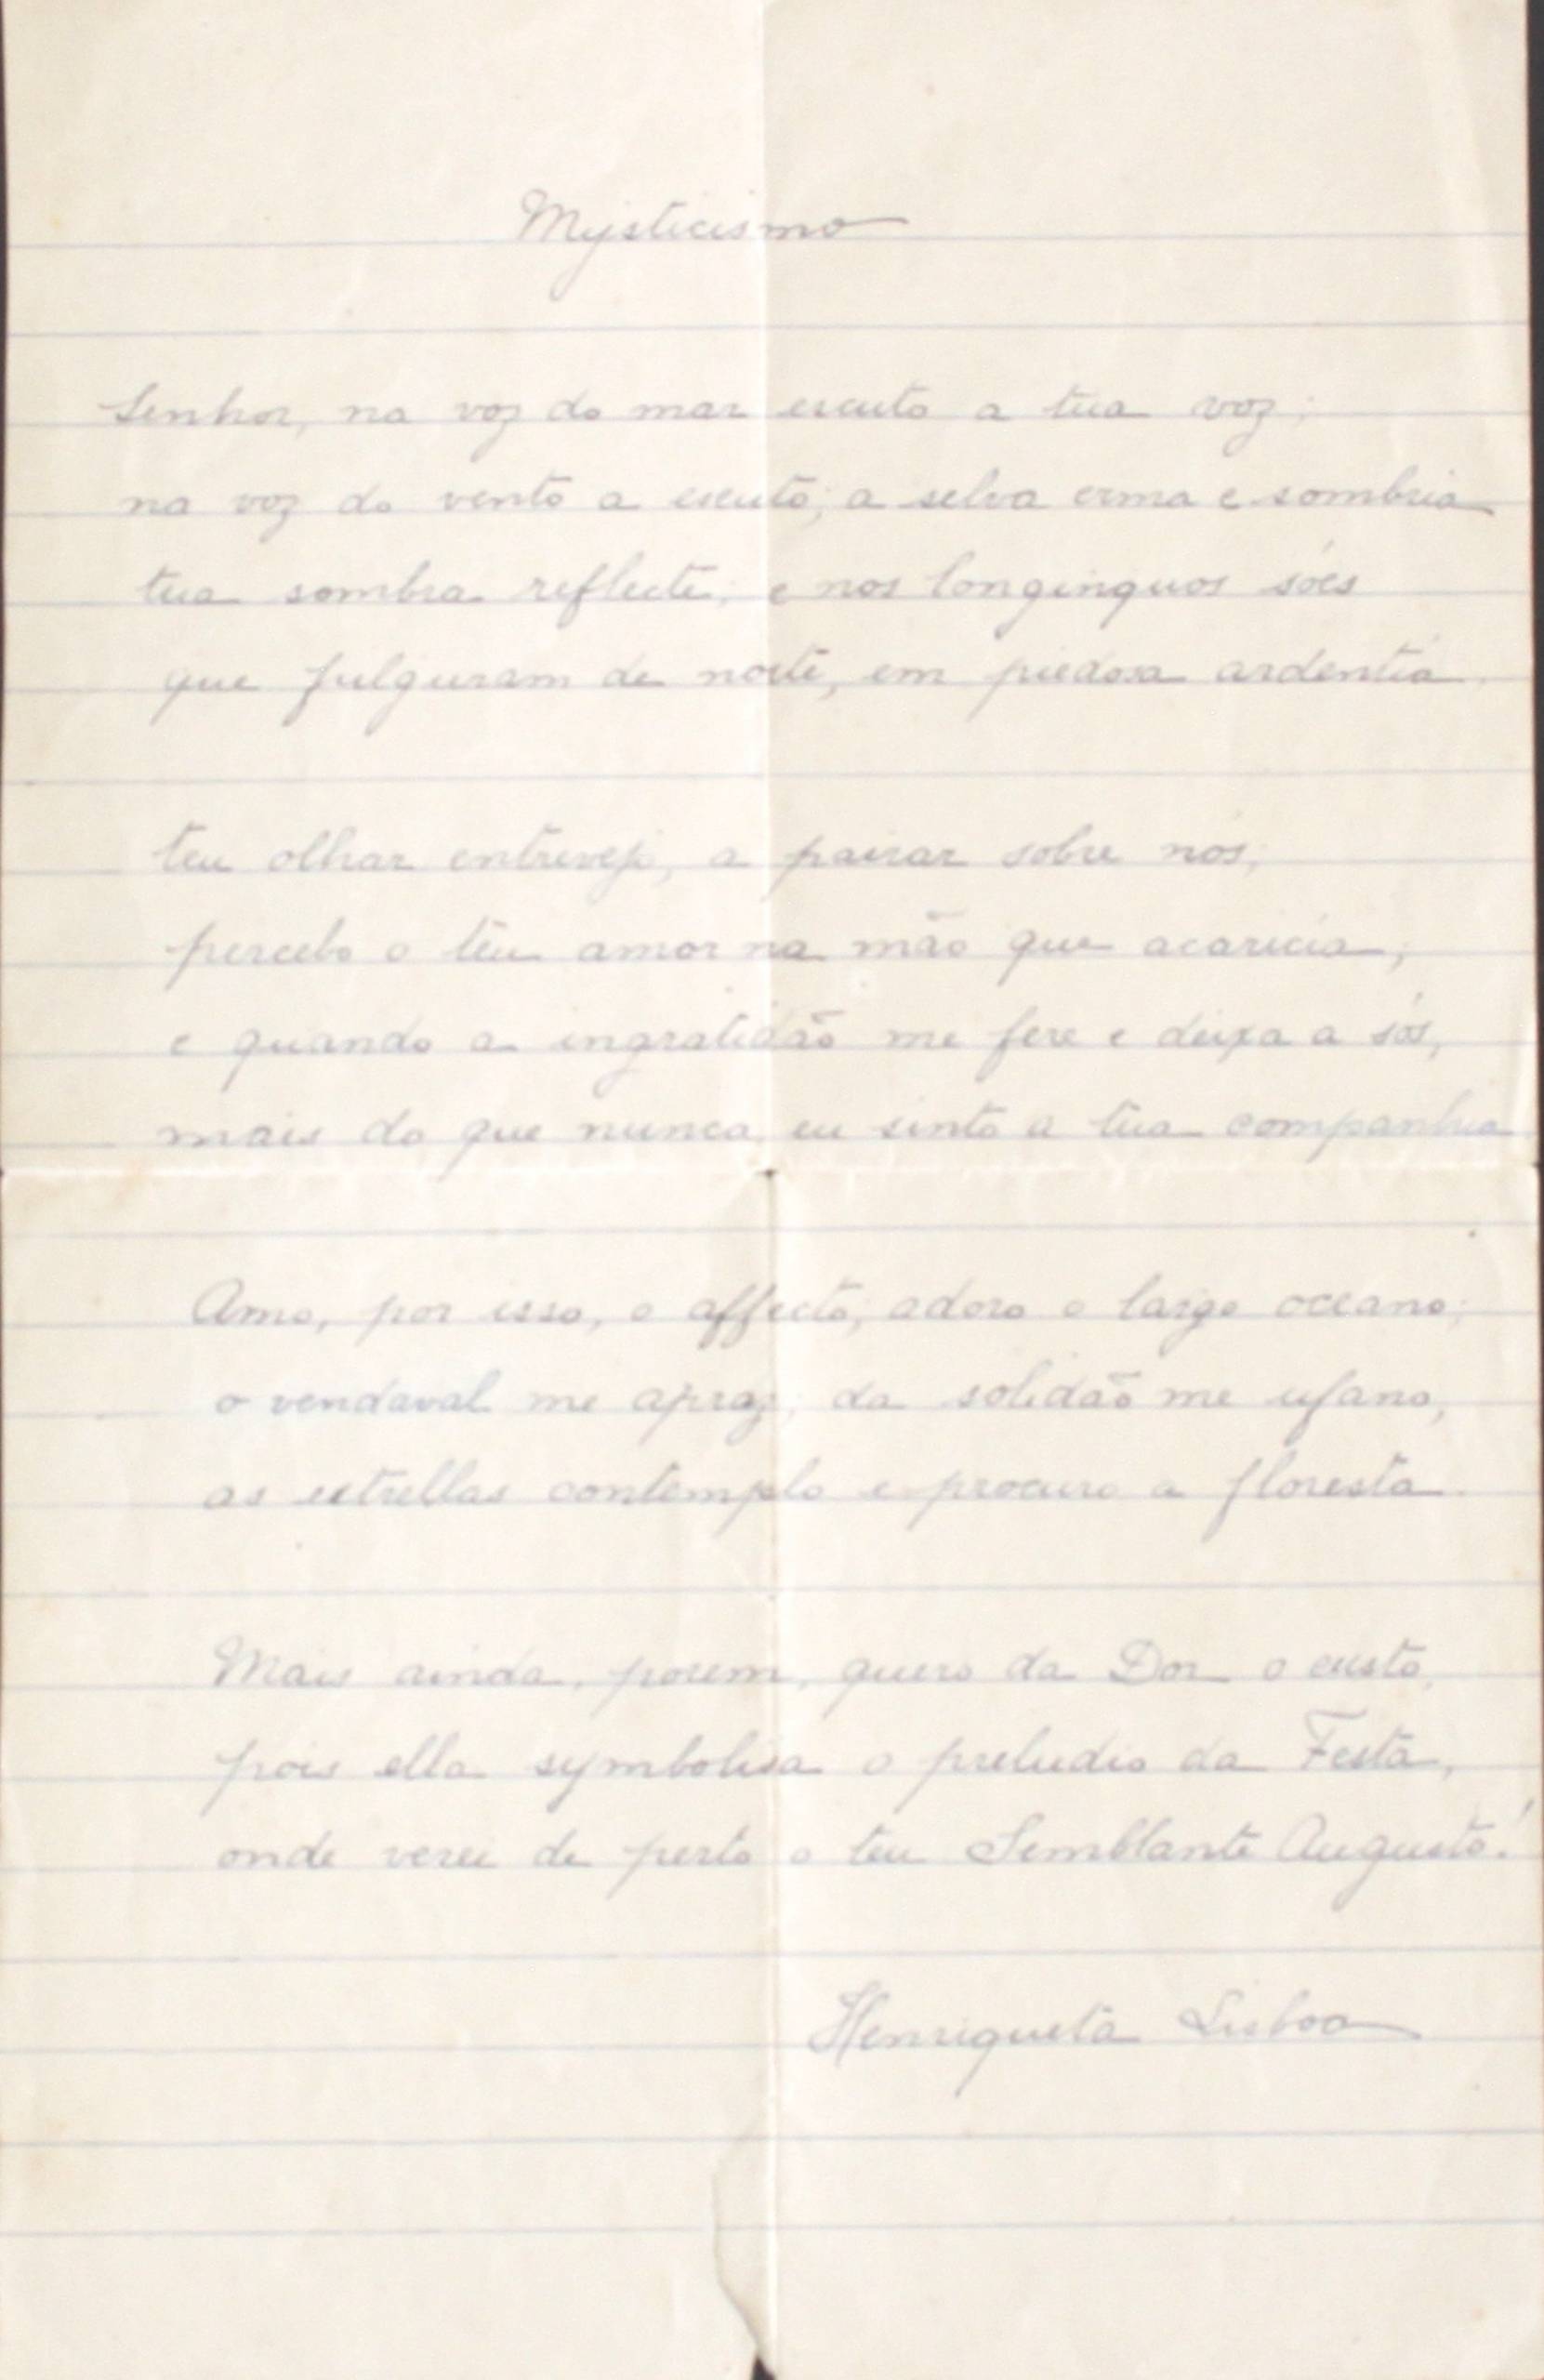 Mysticismo
Senhor, na voz do mar escuto a tua voz;
na voz do vento a escuto; a selva erma e sombria
tua sombra reflecte; e nos longinquos sóes
que fulguram de noite, em piedosa ardentia
teu olhar entrevejo, a pairar sobre nós;
percebo o teu amor na mão que acaricia;
e quando a ingratidão me fere e deixa a sós,
mais do que nunca eu sinto a tua companhia.
Amo, por isso, o affecto; adoro o largo oceano;
o vendaval me apraz; da solidão me ufano,
as estrellas contemplo e procuro a floresta.
Mais ainda, porem, quero da Dor o custo,
pois ella symbolisa o preludio da Festa,
onde verei de perto o teu Semblante Augusto!
Henriqueta Lisboa